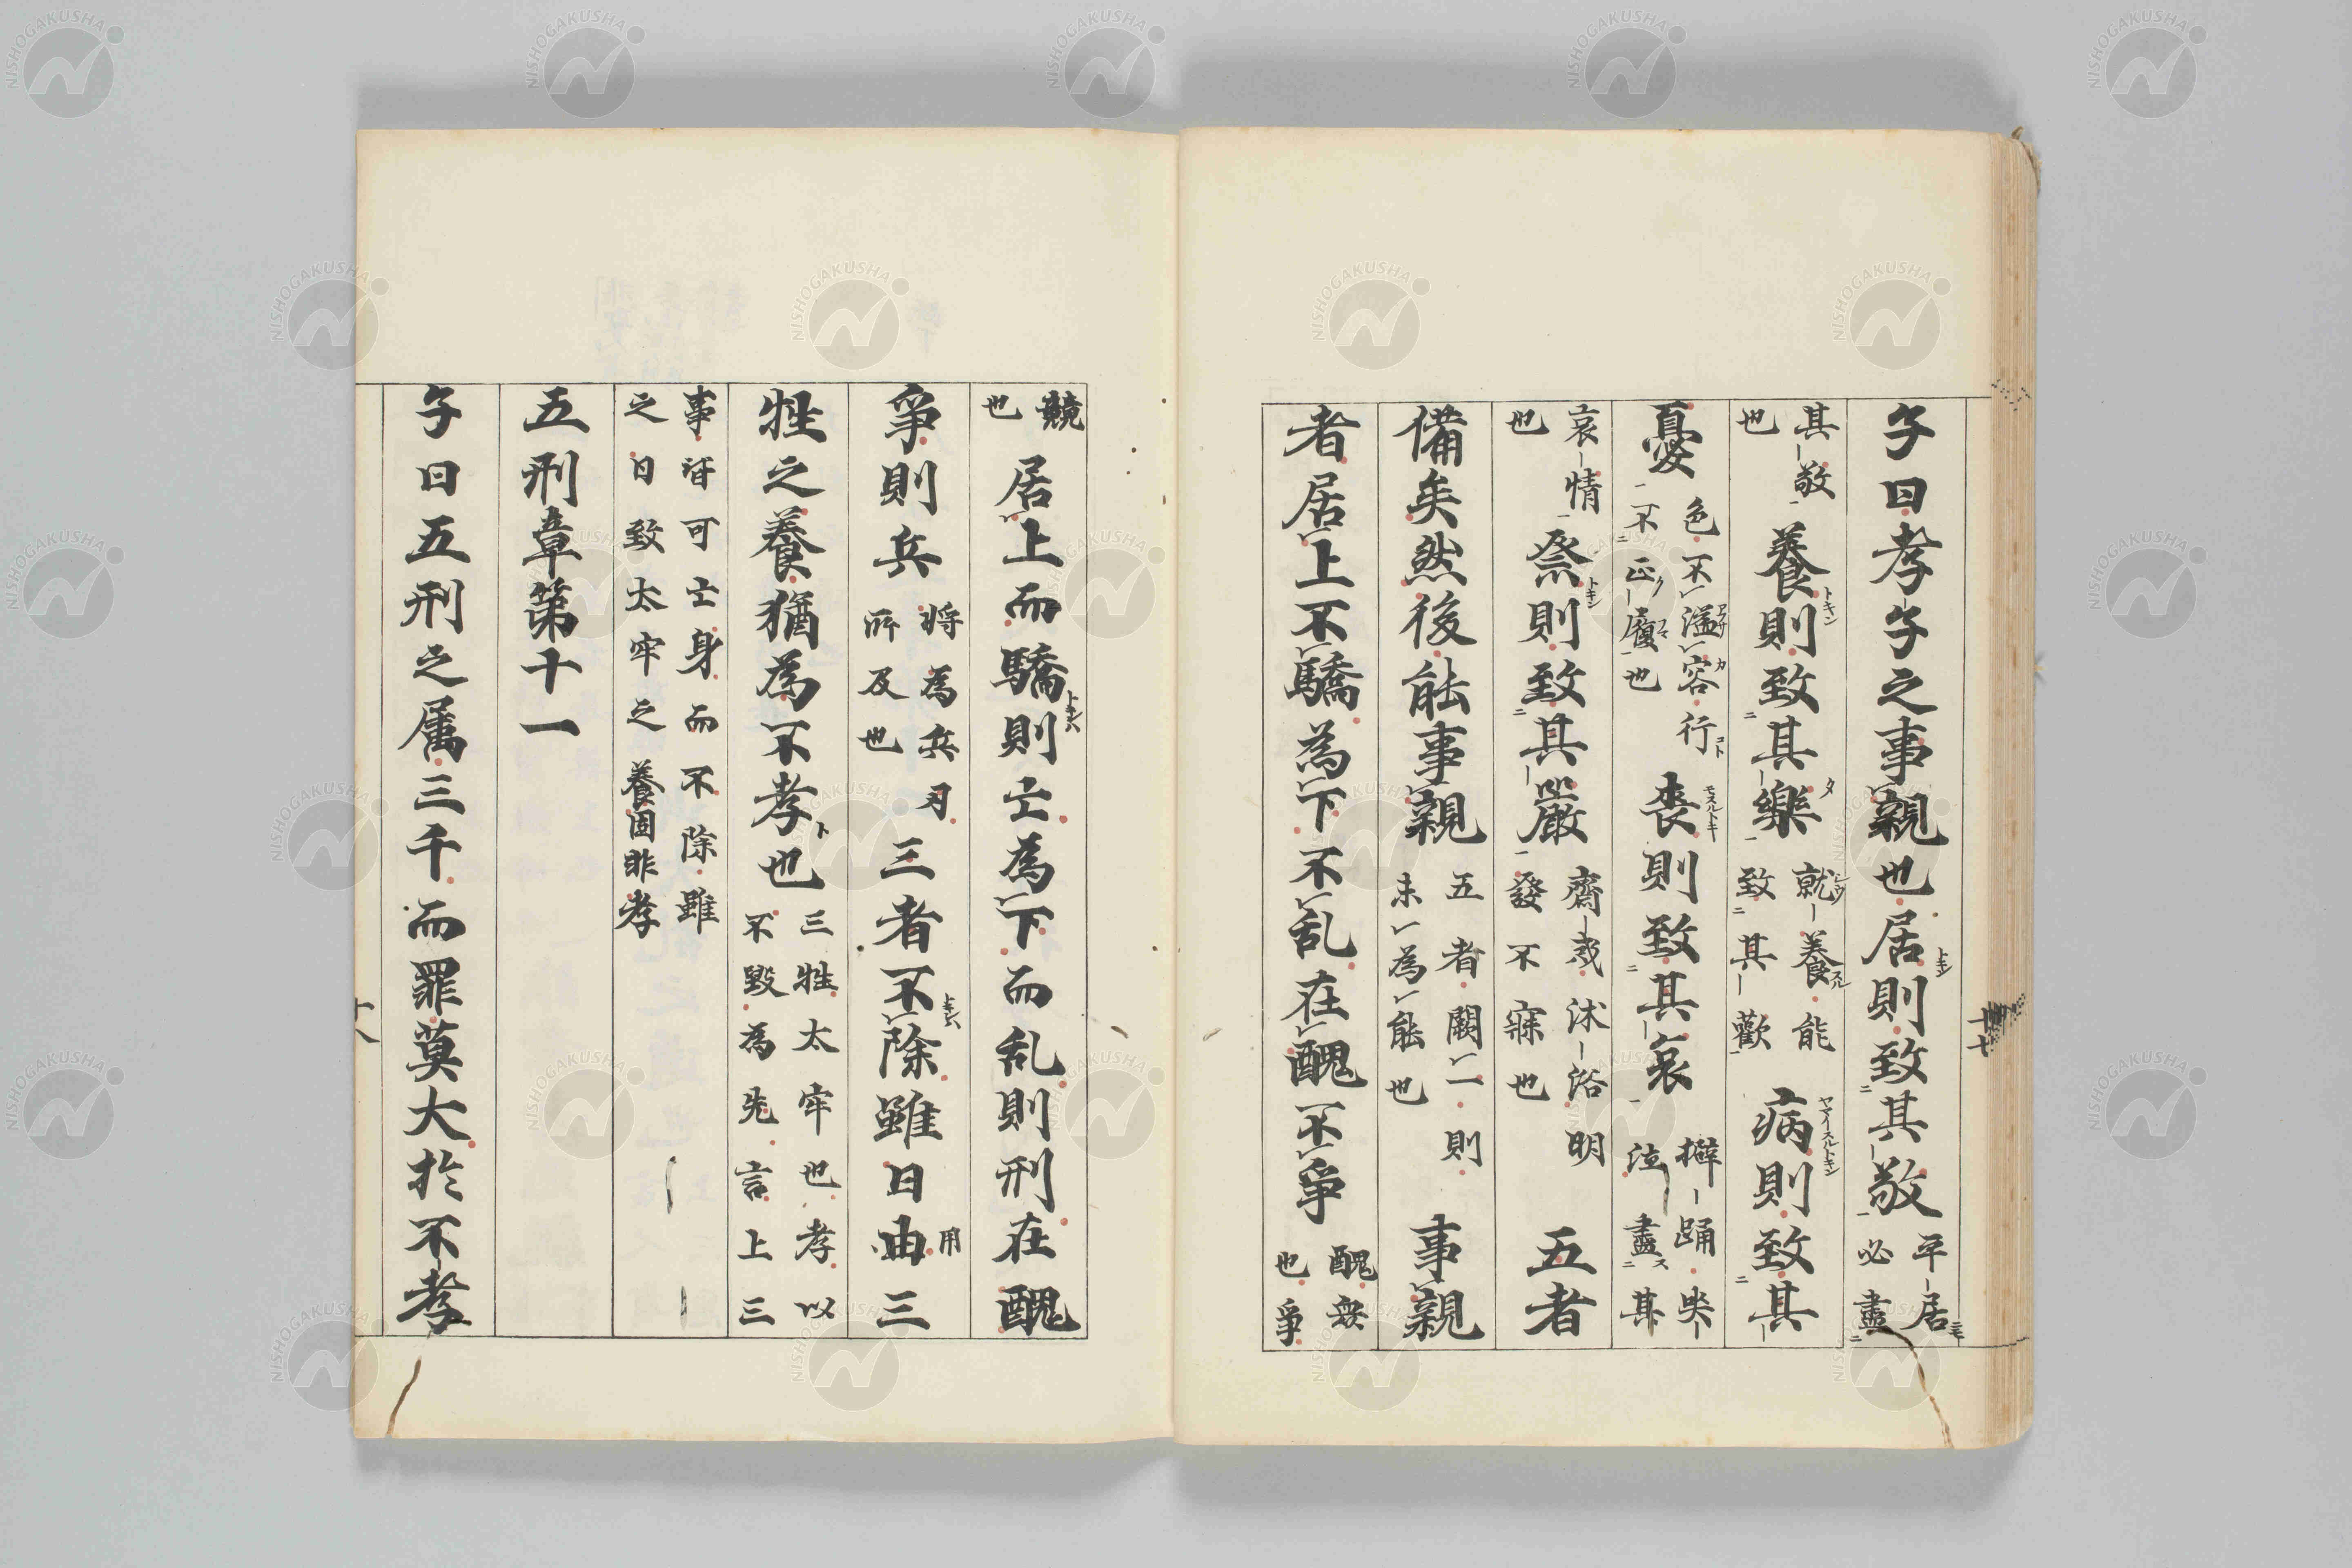 子曰孝子之事親也居則致其敬平居必盡
其敬也養則致其樂就養能致其歡病則致其
憂色不滿容行不正履也喪則致其哀擗踊哭泣盡其
哀情也祭則致其嚴齊戒沐浴明發不寐也五者
備矣然後能事親五者闕一則未為能也事親
者居上不驕為下不乱在醜不爭醜衆也爭
競也居上而驕則亡為下而乱則刑在醜
爭則兵將為兵刃所及也三者不除雖日由用三
牲之養猶為不孝也三牲太牢也孝以不毀為先言上三
事皆可亡身而不除雖之日致太牢之養固非孝
五刑章第十一
子曰五刑之属三千而罪莫大於不孝
十七
十八
NISHOGAKUSHA